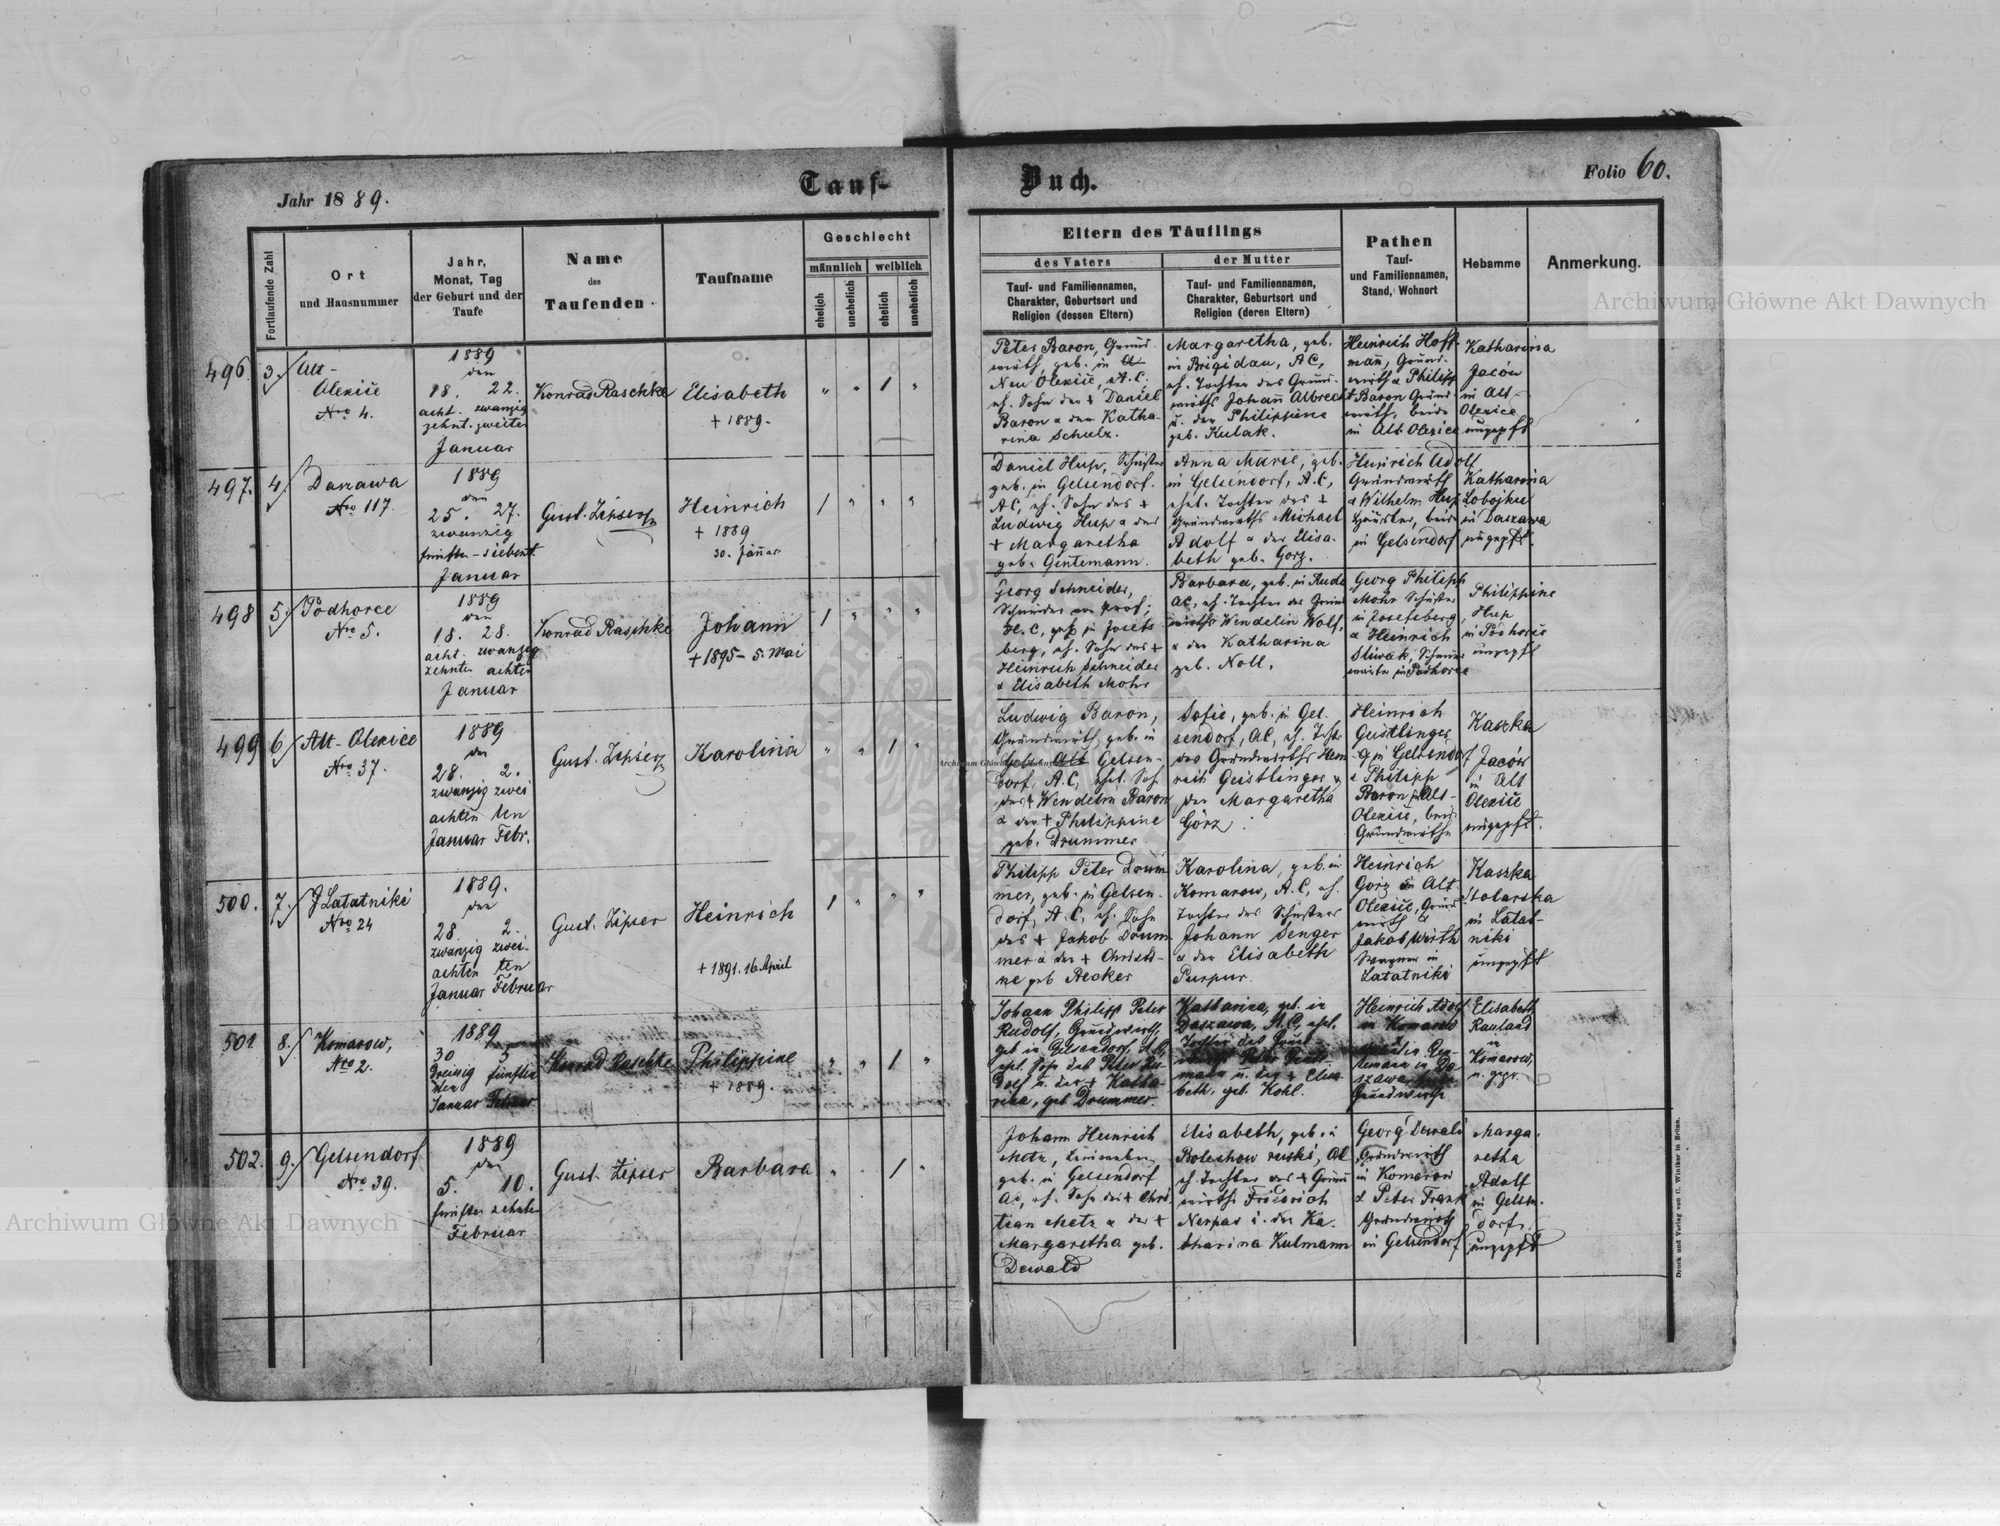 Jahr 1889.
Tauf-
Buch.
Folio 60.
Fortlaufende Zahl
Ort
und Hausnummer
Jahr,
Monat, Tag
der Geburt und der
Taufe
Name
des
Taufenden
Taufname
Geschlecht
männlich
weiblich
ehelich
unehelich
ehelich
unehelich
Eltern des Täuflings
des Vaters
Tauf- und Familiennamen,
Charakter, Geburtsort und
Religion (dessen Eltern)
der Mutter
Tauf- und Familiennamen,
Charakter, Geburtsort und
Religion (deren Eltern)
Pathen
Tauf-
und Familiennamen,
Stand, Wohnort
Hebamme
Anmerkung.
496. 3.
Alt-
Olexice
Nro 4.
1889
den
18. 22.
acht- zwanzig
zehnt. zweiten
Januar
Konrad Raschke
Elisabeth
+ 1889.
" " 1 "
Peter Baron, Grund-
wirth, geb. in
Neu Olexice, A.C.
eh. Sohn des + Daniel
Baron & der Katha-
rina Schulz.
Margaretha, geb.
in Brigidau, AC,
eh. Tochter des Grund-
wirths Johann Albrecht
u. der Philippine
geb. Kulak.
Heinrich Hoff-
mann, Grund-
wirth & Philipp
Baron Grund-
wirth, beide
in Alt Olexice
Katharina
Jaców
in Alt-
Olexice
ungepft
497. 4.
Daszawa
Nro 117.
1889
den
25. 27.
zwanzig
fünften - siebent.
Januar
Gust. Zipser
Heinrich
+ 1889
30. Jänner
1 " " "
Daniel Hup, Schuster
geb. in Gelsendorf.
AC, eh. Sohn des +
Ludwig Hup & der
+ Margaretha
geb. Gentemann.
Anna Marie, geb.
in Gelsendorf, A.C,
ehel. Tochter des +
Grundwirths Michael
Adolf & der Elisa-
beth geb. Görz.
Heinrich Adolf
Grundwirth
& Wilhelm Hup
beide
in Gelsendorf
Katharina
Lobojku
in Daszawa
ungepft.
498 5.
Podhorce
Nro 5.
1889
den
18. 28.
acht- zwanzig
zehnten achten
Januar
Konrad Raschke
Johann
+ 1895 - 5. Mai
1 " " "
Georg Schneider,
H.C, geb in Josefs
berg, eh. Sohn des +
Heinrich Schneider
& Elisabeth Mohr
Barbara, geb. in
AC, eh. Tochter des Grund
wirths Wendelin Wolf,
& der Katharina
geb. Noll.
Georg Philipp
Mohr Schuster
in Josefsberg
& Heinrich
in Podhorce
Philippine
Hup
in Podhorce
ungepft
499 6
Alt-Olexice
Nro 37.
1889
den
28. 2.
zwanzig zwei
achten ten
Januar Febr.
Gust. Zipser
Karolina
" " 1 "
Ludwig Baron,
Grundwirth, geb. in
Gelsen-
dorf, A.C, ehel. Soh
des + Wendelin Baron
& der + Philippine
geb. Drummer
Sofie, geb. in Gel-
sendorf, AC, eh. Tocht
des Grundwirths Hein
rich Geistlinger &
der Margaretha
Görz.
Heinrich
Geistlinger
in Gelsendorf
& Philipp
Baron in Alt-
Olexice, beide
Grundwirthe
Kaszka
Jaców
in Alt
Olexice
ungepft.
500. 7.
Latatniki
Nro 24
1889.
den
28. 2.
zwanzig zwei-
achten ten
Januar Februar
Gust. Zipser
Heinrich
+ 1891. 16. April
1 " " "
Philipp Peter Drum
mer, geb. in Gelsen-
dorf, A.C, eh. Sohn
des + Jakob Drum
mer & der + Christi-
ne geb Becker
Karolina, geb. in
Komarow, A.C, eh.
Tochter des Schusters
Johann Senger
& der Elisabeth
Purpur.
Heinrich
Görz in Alt-
Olexice, Grund
wirth &
Jakob Wirth
Wagner in
Latatniki
Kaszka
Stolarska
in Latat-
niki
ungepft
501. 8.
Komarow,
Nro 2.
1889
30 5
dreissig fünften
sten
Januar Februar
Konrad Raschke
Philippine
+ 1889.
" " 1 "
Johann Philipp Peter
Rudolf, Grundwirth,
geb in Gelsendorf, A.C,
ehel. Sohn des Peter Ru-
dolf u. der + Katha-
rina, geb Drummer.
Katharina, geb. in
Daszawa, A.C, ehel.
Tochter des Grund-
wirths Peter Gente-
mann u. der + Elisa-
beth, geb. Kohl.
Heinrich Adolf
in Komarow
temann in Da-
szawa
Grundwirthe
Elisabeth
Rauland
in
Komarow,
u. gepr.
502. 9.
Gelsendorf
Nro 39.
1889
den
5. 10.
fünften zehnten
Februar
Gust. Zipser
Barbara
" . 1 "
Johann Heinrich
Metz, Leinweber,
geb. in Gelsendorf
AC, eh. Sohn des + Chris
tian Metz & der +
Margaretha geb.
Dewald
Elisabeth, geb. in
Bolechow ruski, AC
eh. Tochter des + Grund
wirths Friedrich
Nerpas u. der Ka-
tharina Kulmann
Georg Dewald
Grundwirth
in Komarow
& Peter Frank
Grundwirth
in Gelsendorf
Marga-
retha
Adolf
in Gelsen-
dorf.
ungepft
Druck und Verlag von C. Winiker in Brünn.
Archiwum Główne Akt Dawnych
Archiwum Główne Akt Dawnych